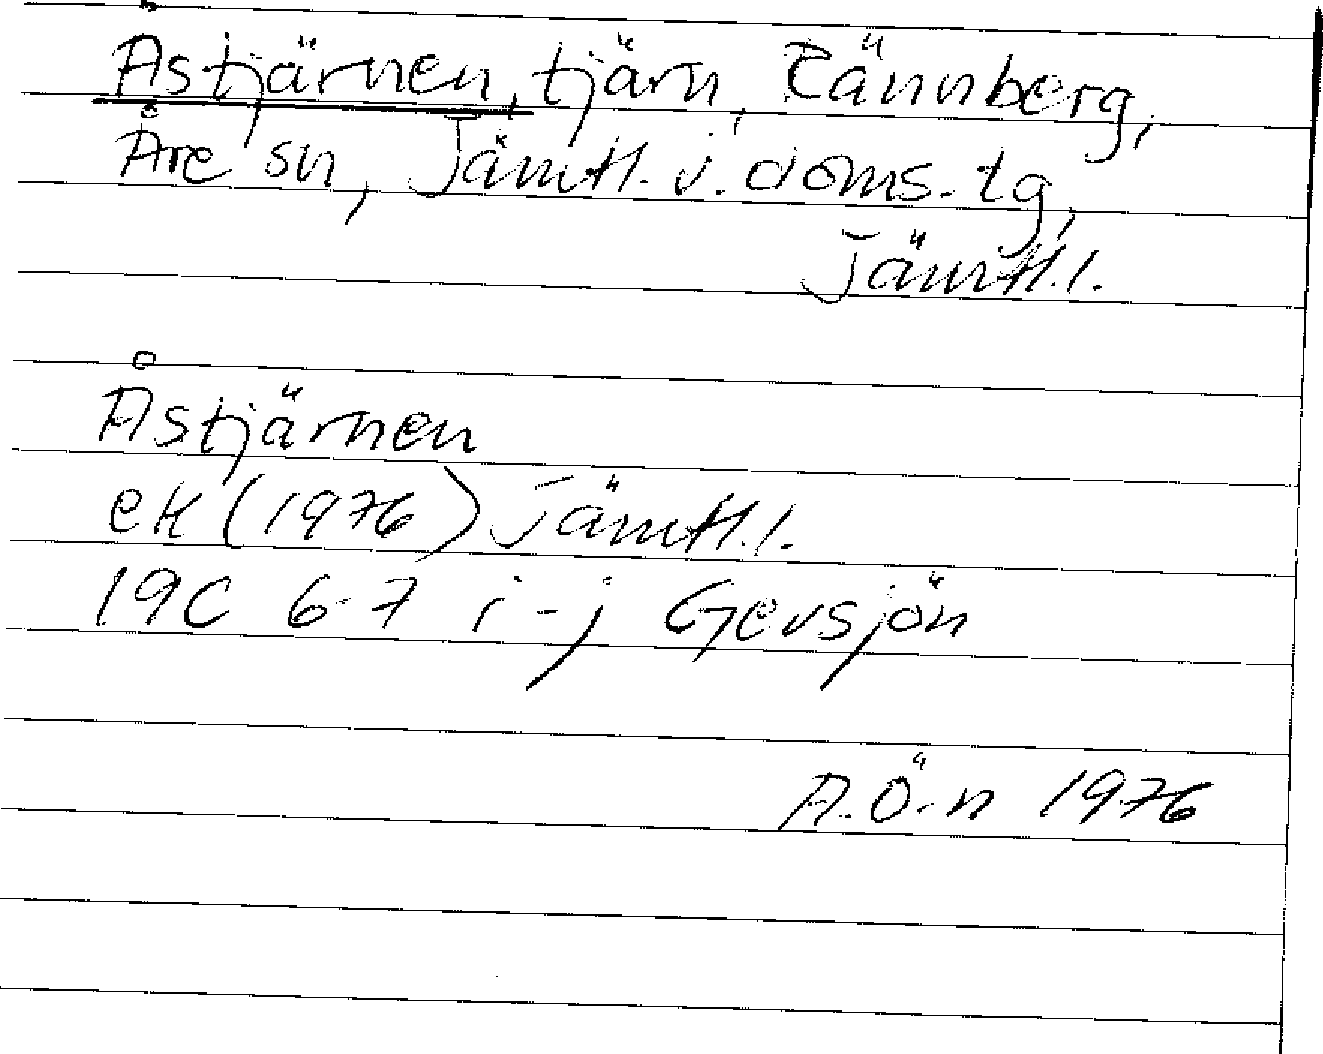 Åstjärnen, tjärn, Rännberg,
Åre sn, Jämtl. v. doms. tg,
Jämtl. l.
Åstjärnen
ek (1976) Jämtl. l.
19C 6-7 i-j Gevsjön
A.Ö-n 1976